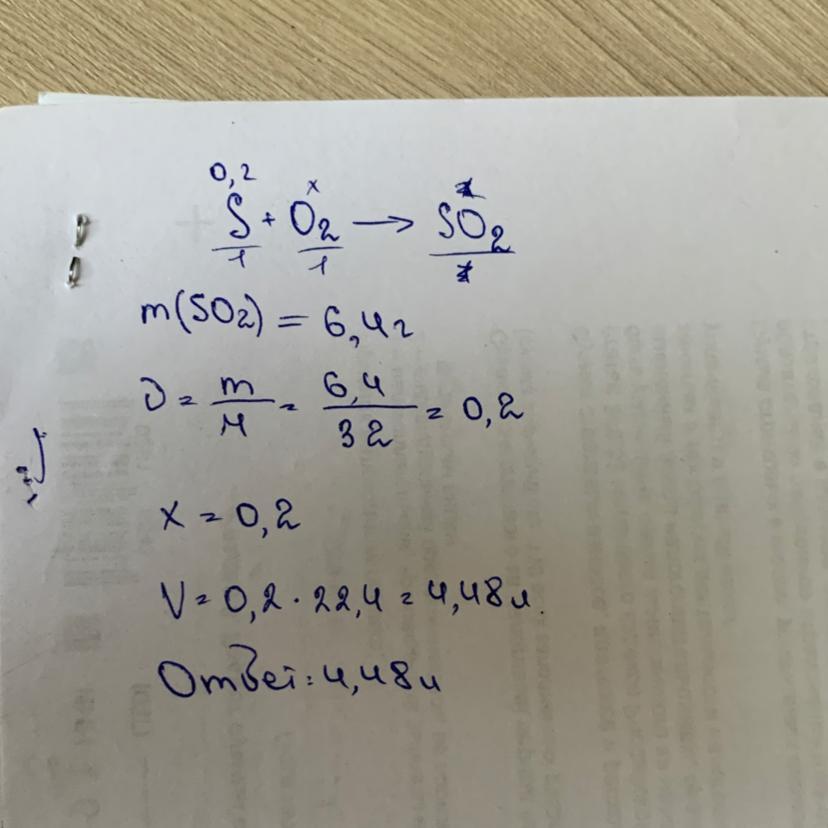 0,2 x
S + O2 → SO2
1 1
m(SO2) = 6,4г
ν = m/M = 6,4/32 = 0,2
x = 0,2
V = 0,2 · 22,4 = 4,48л.
Ответ: 4,48л